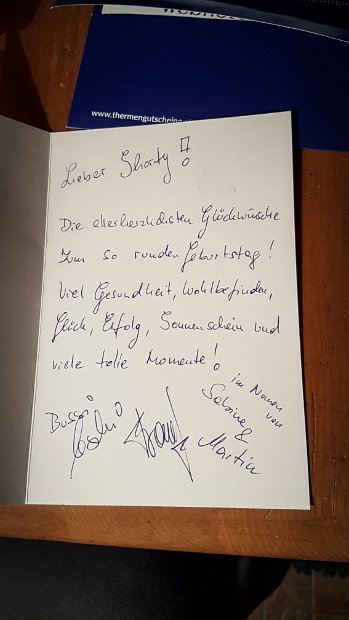 www.thermengutscheine
Lieber Shorty!
Die allerherzlichsten Glückwünsche
zum so runden Geburtstag!
Viel Gesundheit, Wohlbefinden,
Glück, Erfolg, Sonnenschein und
viele tolle Momente!
Bussi
im Namen
von
Sabine &
Martin